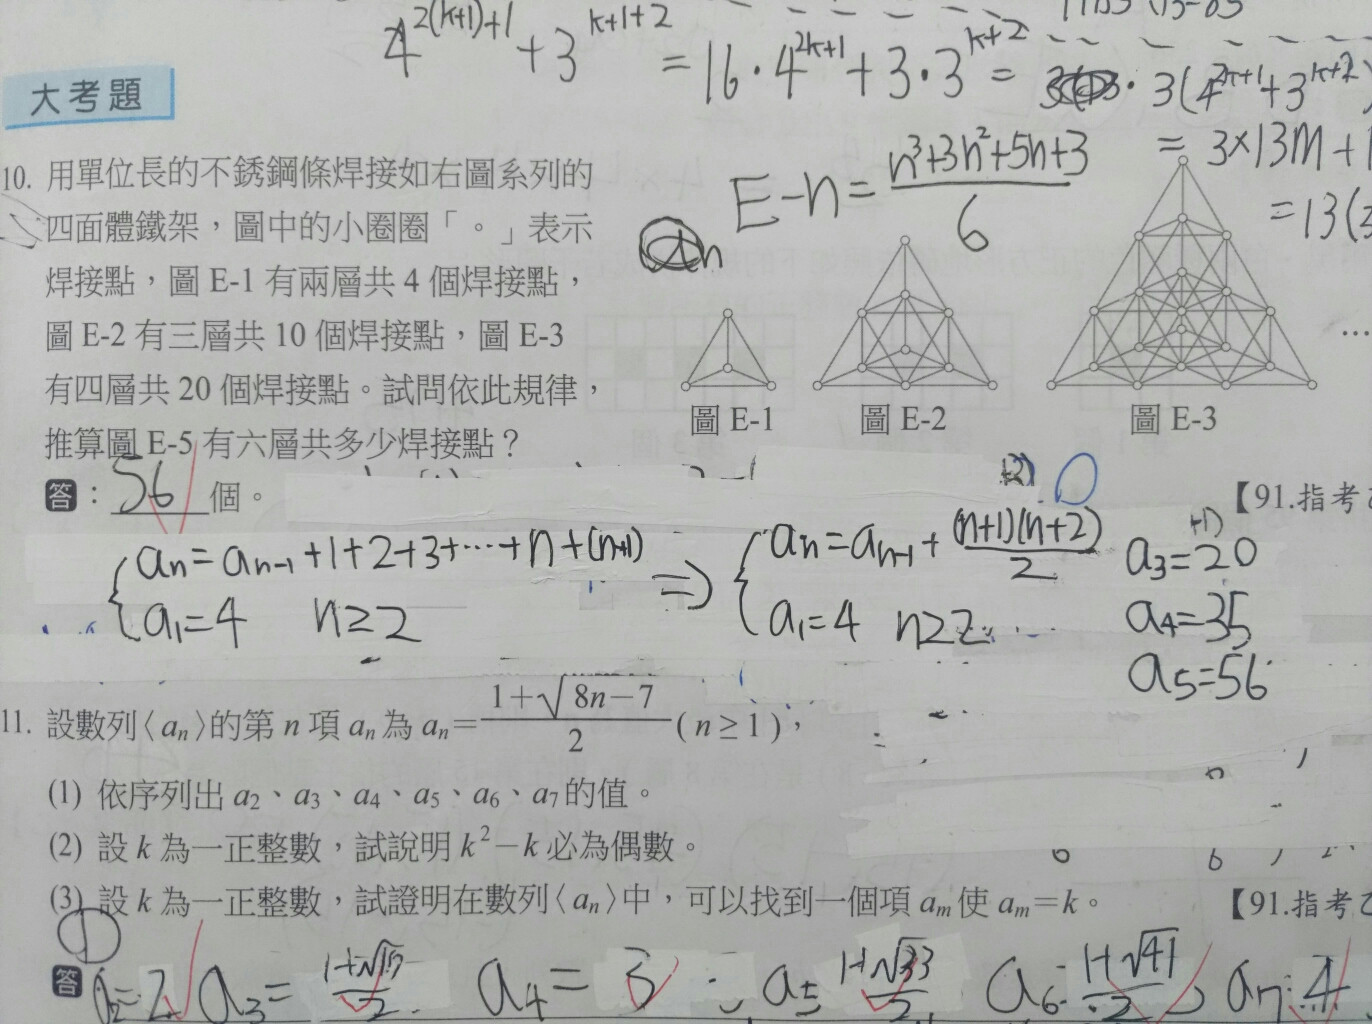 4^{2(k+1)+1} + 3^{k+1+2} = 16·4^{2k+1} + 3·3^{k+2} = 3(4^{2k+1}+3^{k+2})
= 3×13m+1
=13(
大考題
10. 用單位長的不銹鋼條焊接如右圖系列的
四面體鐵架，圖中的小圈圈「。」表示
焊接點，圖 E-1 有兩層共 4 個焊接點，
圖 E-2 有三層共 10 個焊接點，圖 E-3
有四層共 20 個焊接點。試問依此規律，
推算圖 E-5 有六層共多少焊接點？
E-n = \frac{n³+3n²+5n+3}{6}
圖 E-1 圖 E-2 圖 E-3
…
答：56 個。
【91.指考乙
a_n=a_{n-1}+1+2+3+…+n+(n+1) ⇒ a_n=a_{n-1}+\frac{(n+1)(n+2)}{2}
a_1=4 n≥2 a_1=4 n≥2
a_3=20
a_4=35
a_5=56
11. 設數列〈a_n〉的第 n 項 a_n 為 a_n=\frac{1+√8n−7}{2}(n≥1)，
(1) 依序列出 a_2、a_3、a_4、a_5、a_6、a_7 的值。
(2) 設 k 為一正整數，試說明 k²−k 必為偶數。
(3) 設 k 為一正整數，試證明在數列〈a_n〉中，可以找到一個項 a_m 使 a_m=k。
【91.指考乙
①
答 a_2=2 a_3=\frac{1+√17}{2} a_4=3 a_5 \frac{1+√33}{2} a_6=\frac{1+√41}{2} a_7=4